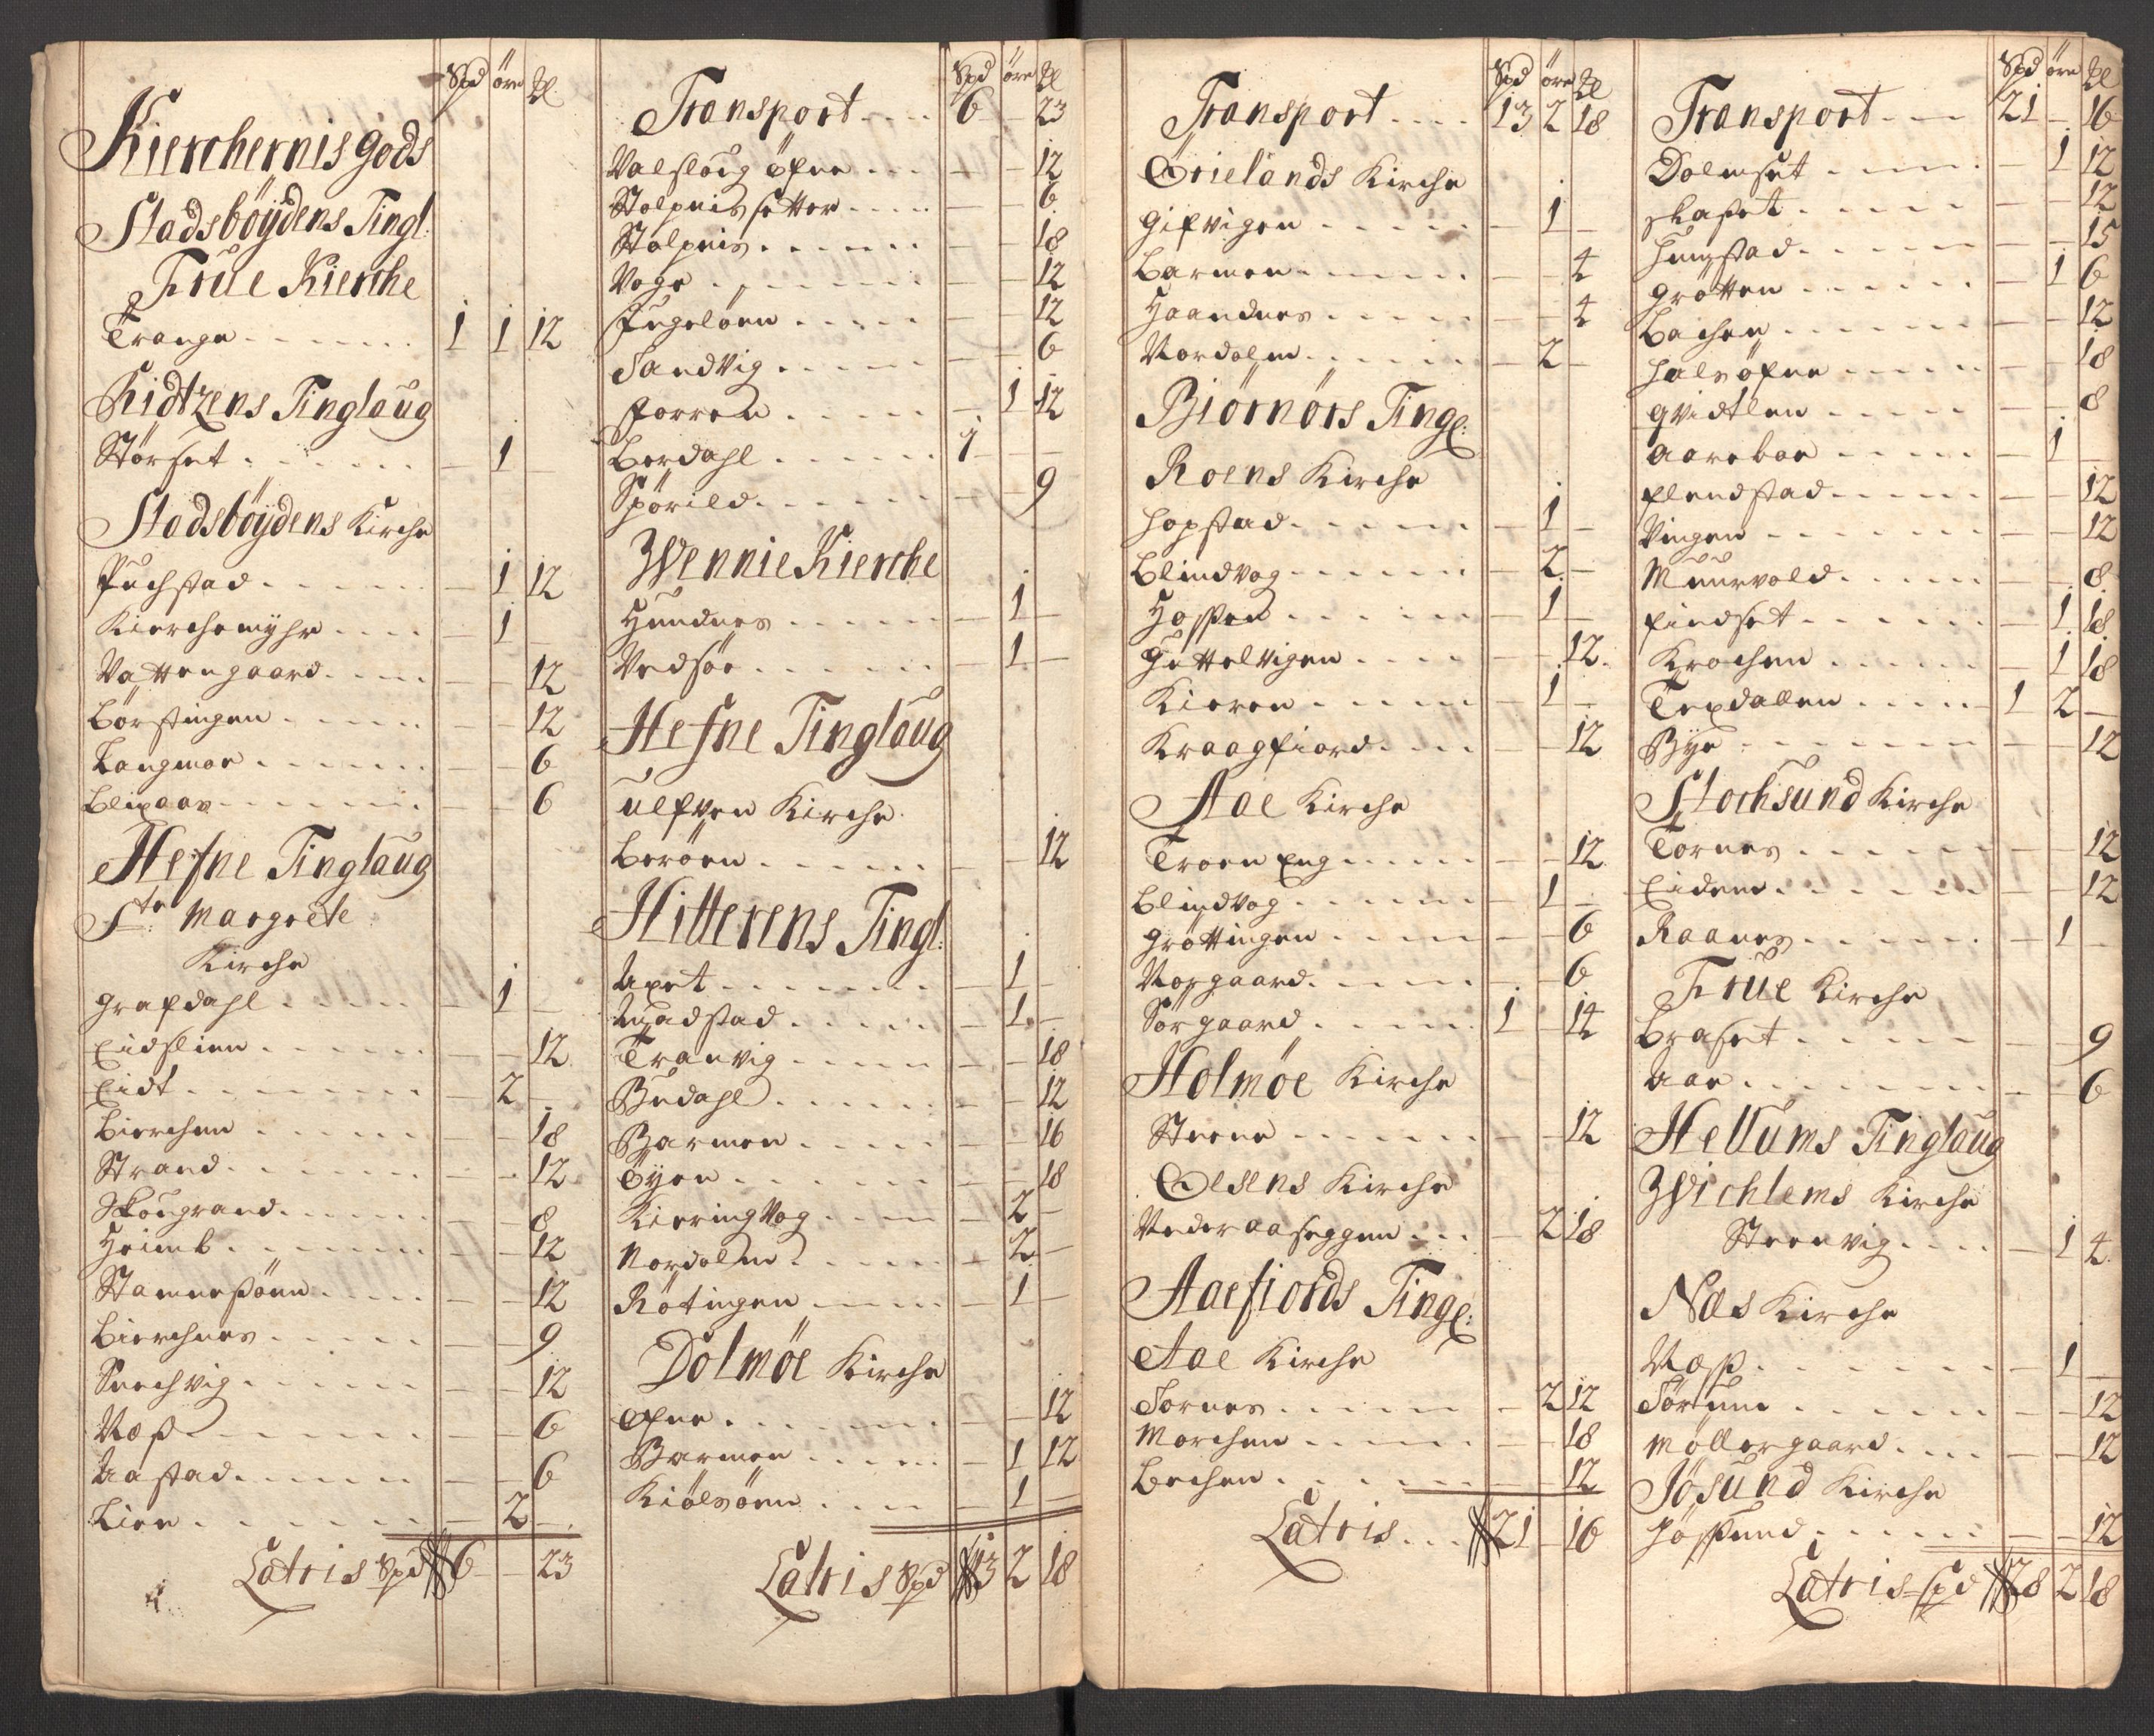 Spd öre Ml
Kierchernis gods
Stadsböydens Tingl:
Frue Kierche
Trange 1 1 12
Ridtzens Tinglaug
Störset – 1 –
Stadsböydens Kirche
Puchstad – 1 12
Kierchemyhr – 1 –
Vattengaard – – 12
Börstingen – 12
Langmoe – – 6
Blixaas – – 6
Hefne Tinglaug
Ste: Margrete
Kirche
Grafdahl – 1 –
Eidslien – – 12
Eidt – 2 –
Bierchen – – 18
Strand – – 12
Skougrand – – 8
Heimb – – 12
Stamnesöen – – 12
Bierchnes – – 9
Snechvig – – 12
Næss – – 6
Aastad – – 6
Lien – 2 –
Latris Spd 6 – 23
Spd öre Ml
Transport 6 – 23
Valslaug öfne – – 12
Stolpnis setter – – 6
Stolpnis – – 18
Vage – – 12
Fugeløen – – 12
Sandvig – – 6
Forren – 1 12
Berdahl 1 – –
Spörild – – 9
Wennie Kierche
Hundnes – 1 –
Vedsöe – 1 –
Hefne Tinglaug
Ulfven Kirche
Beröen – – 12
Hitterens Tingl:
Uxet – 1 –
Undstad – 1 –
Tranvig – – 18
Budahl – – 12
Barmen – – 16
Öyen – – 18
Kieringvog – 2 –
Nordolm – 2 –
Rötingen – 1 –
Dolmöe Kirche
Öfne – – 12
Barmen – 1 12
Kiölsöen – 1 –
Latris Spd 13 2 18
Spd öre Ml
Transport 13 2 18
Örielands Kirche
Gifvigen – 1 –
Barmen – – 4
Haandnes – – 4
Nordolm – 2 –
Biörnörs Tingl:
Roens Kirche
Hopstad – 1 –
Blindvog – 2 –
Hossen – 1 –
Guttelvigen – – 12
Kieren – 1 –
Kraagfiord – – 12
Aae Kirche
Troen Eng – – 12
Blindvog – 1 –
Gröttingen – – 6
Norgaard – – 6
Sörgaard 1 – 14
Holmöe Kirche
Steene – – 12
Oesens Kirche
Nederaaseggen – 2 18
Aaefiords Tingl:
Aae Kirche
Sornes – 2 12
Morchen – – 18
Bechen – – 12
Latris 21 – 16
Spd öre Ml
Transport 21 – 16
Dolmset – 1 12
Skaset – – 12
Hungstad – – 15
Grötten – 1 6
Bachen – – 12
Halsöfne – – 18
Qvidtlen – – 8
Aareboe – 1 –
Flendstad – – 12
Vingen – – 12
Muurvold – – 8
Findset – 1 18
Krochen – 1 18
Texdallen 1 2 –
Bye – – 12
Stochsund Kirche
Tornes – – 12
Eidem – – 12
Raanes – 1 –
Frue Kirche
Braset – – 9
Aae – – 6
Hellums Tinglaug
Wichlems Kirche
Steenvig – 1 4
Næs Kirche
Næss – 1 –
Sörtum – – 12
Möllergaard – – 12
Jösund Kirche
Jössund – – 12
Latris Spd 28 2 18